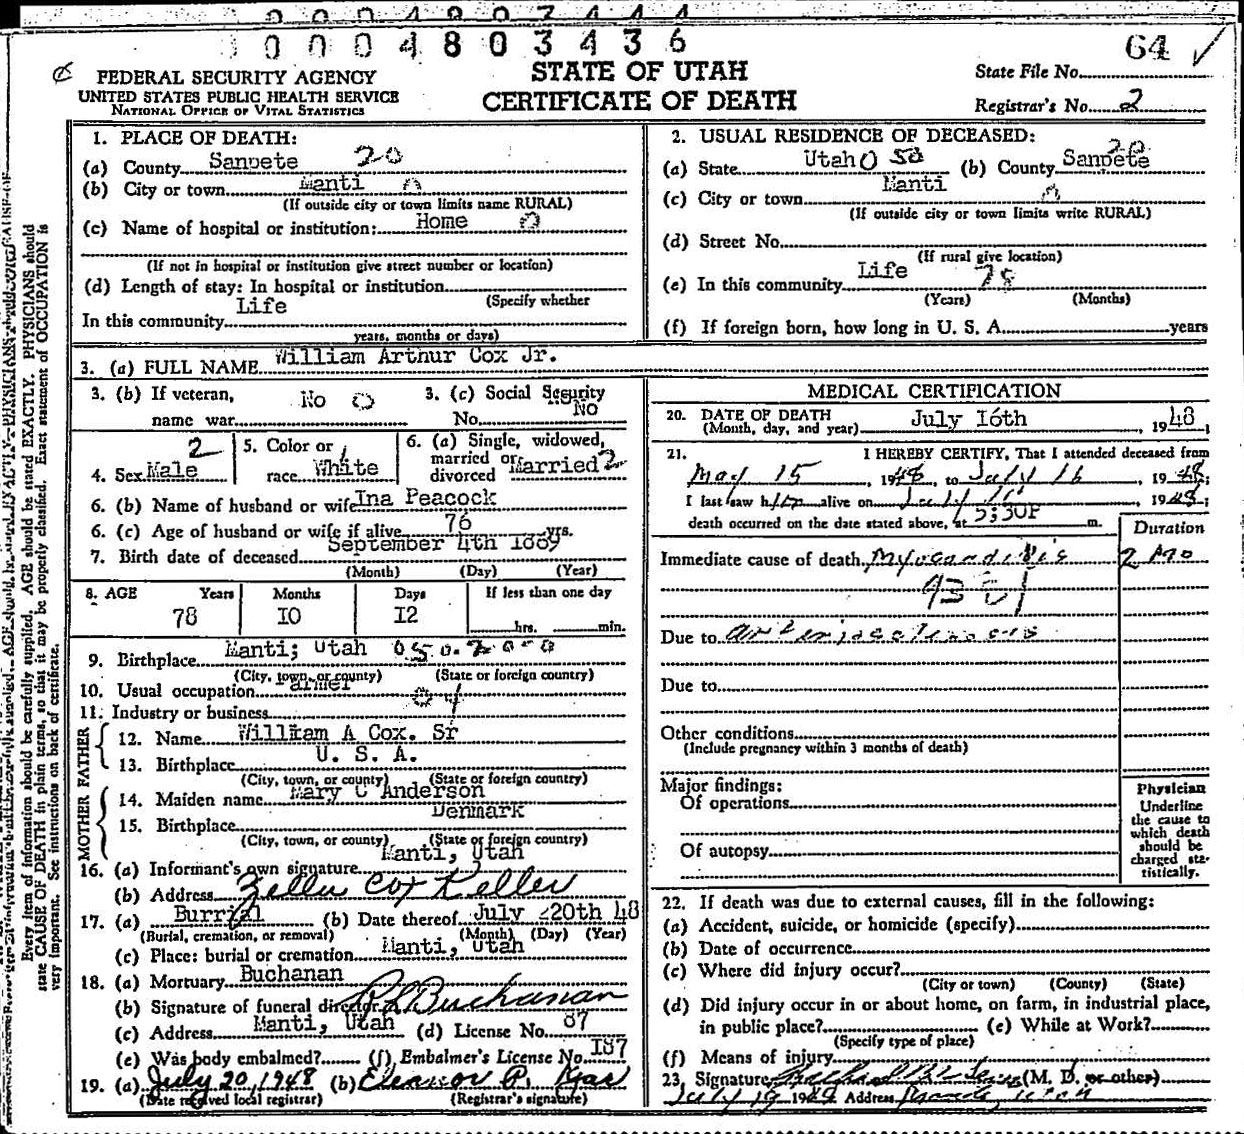 0 0 0 4 8 0 3 4 3 6
64 ✓
FEDERAL SECURITY AGENCY
UNITED STATES PUBLIC HEALTH SERVICE
NATIONAL OFFICE OF VITAL STATISTICS
STATE OF UTAH
CERTIFICATE OF DEATH
State File No.
Registrar's No. 2
1. PLACE OF DEATH:
(a) County Sanpete 20
(b) City or town Manti 0
(If outside city or town limits name RURAL)
(c) Name of hospital or institution: Home 0
(If not in hospital or institution give street number or location)
(d) Length of stay: In hospital or institution
(Specify whether
In this community Life
years, months or days)
2. USUAL RESIDENCE OF DECEASED:
(a) State Utah 0 (b) County Sanpete 20
(c) City or town Manti 0
(If outside city or town limits write RURAL)
(d) Street No.
(If rural give location)
(e) In this community Life 78
(Years) (Months)
(f) If foreign born, how long in U. S. A. years
3. (a) FULL NAME William Arthur Cox Jr.
3. (b) If veteran, name war No 0
3. (c) Social Security No. NO
4. Sex Male 2
5. Color or race White 1
6. (a) Single, widowed, married or divorced Married 2
6. (b) Name of husband or wife Ina Peacock
6. (c) Age of husband or wife if alive 76 yrs.
7. Birth date of deceased September 4th
(Month) (Day) (Year)
8. AGE Years Months Days If less than one day
78 IO I2 hrs. min.
9. Birthplace Manti; Utah
(City, town, or county) (State or foreign country)
10. Usual occupation Farmer 04
11. Industry or business
FATHER
12. Name William A Cox. Sr
13. Birthplace U. S. A.
(City, town, or county) (State or foreign country)
MOTHER
14. Maiden name Mary C Anderson
15. Birthplace Denmark
(City, town, or county) (State or foreign country)
Manti, Utah
16. (a) Informant's own signature
(b) Address Zella Cox Keller
17. (a) Burrial (b) Date thereof July 20th 48
(Burial, cremation, or removal) (Month) (Day) (Year)
(c) Place: burial or cremation Manti, Utah
18. (a) Mortuary Buchanan
(b) Signature of funeral director Buchanan
(c) Address Manti, Utah (d) License No. 87
(e) Was body embalmed? (f) Embalmer's License No. I87
19. (a) July 20, 1948 (b) Eleanor P.
(Date received local registrar) (Registrar's signature)
MEDICAL CERTIFICATION
20. DATE OF DEATH July I6th, 1948;
(Month, day, and year)
21. I HEREBY CERTIFY, That I attended deceased from
May 15, 1948, to July 16, 1948;
I last saw him alive on July 16 1948;
death occurred on the date stated above, at 5;30P m.
Duration
Immediate cause of death Myocarditis 2 Mo
93
Due to arteriosclerosis
Due to
Other conditions
(Include pregnancy within 3 months of death)
Major findings:
Of operations
Of autopsy
Physician
Underline
the cause to
which death
should be
charged sta-
tistically.
22. If death was due to external causes, fill in the following:
(a) Accident, suicide, or homicide (specify)
(b) Date of occurrence
(c) Where did injury occur?
(City or town) (County) (State)
(d) Did injury occur in or about home, on farm, in industrial place,
in public place? (e) While at Work?
(Specify type of place)
(f) Means of injury
23. Signature (M. D. or other)
July 19 Address Utah
Every item of information should be carefully supplied. AGE should be stated EXACTLY. PHYSICIANS should
state CAUSE OF DEATH in plain terms, so that it may be properly classified. Exact statement of OCCUPATION is
very important. See instructions on back of certificate.